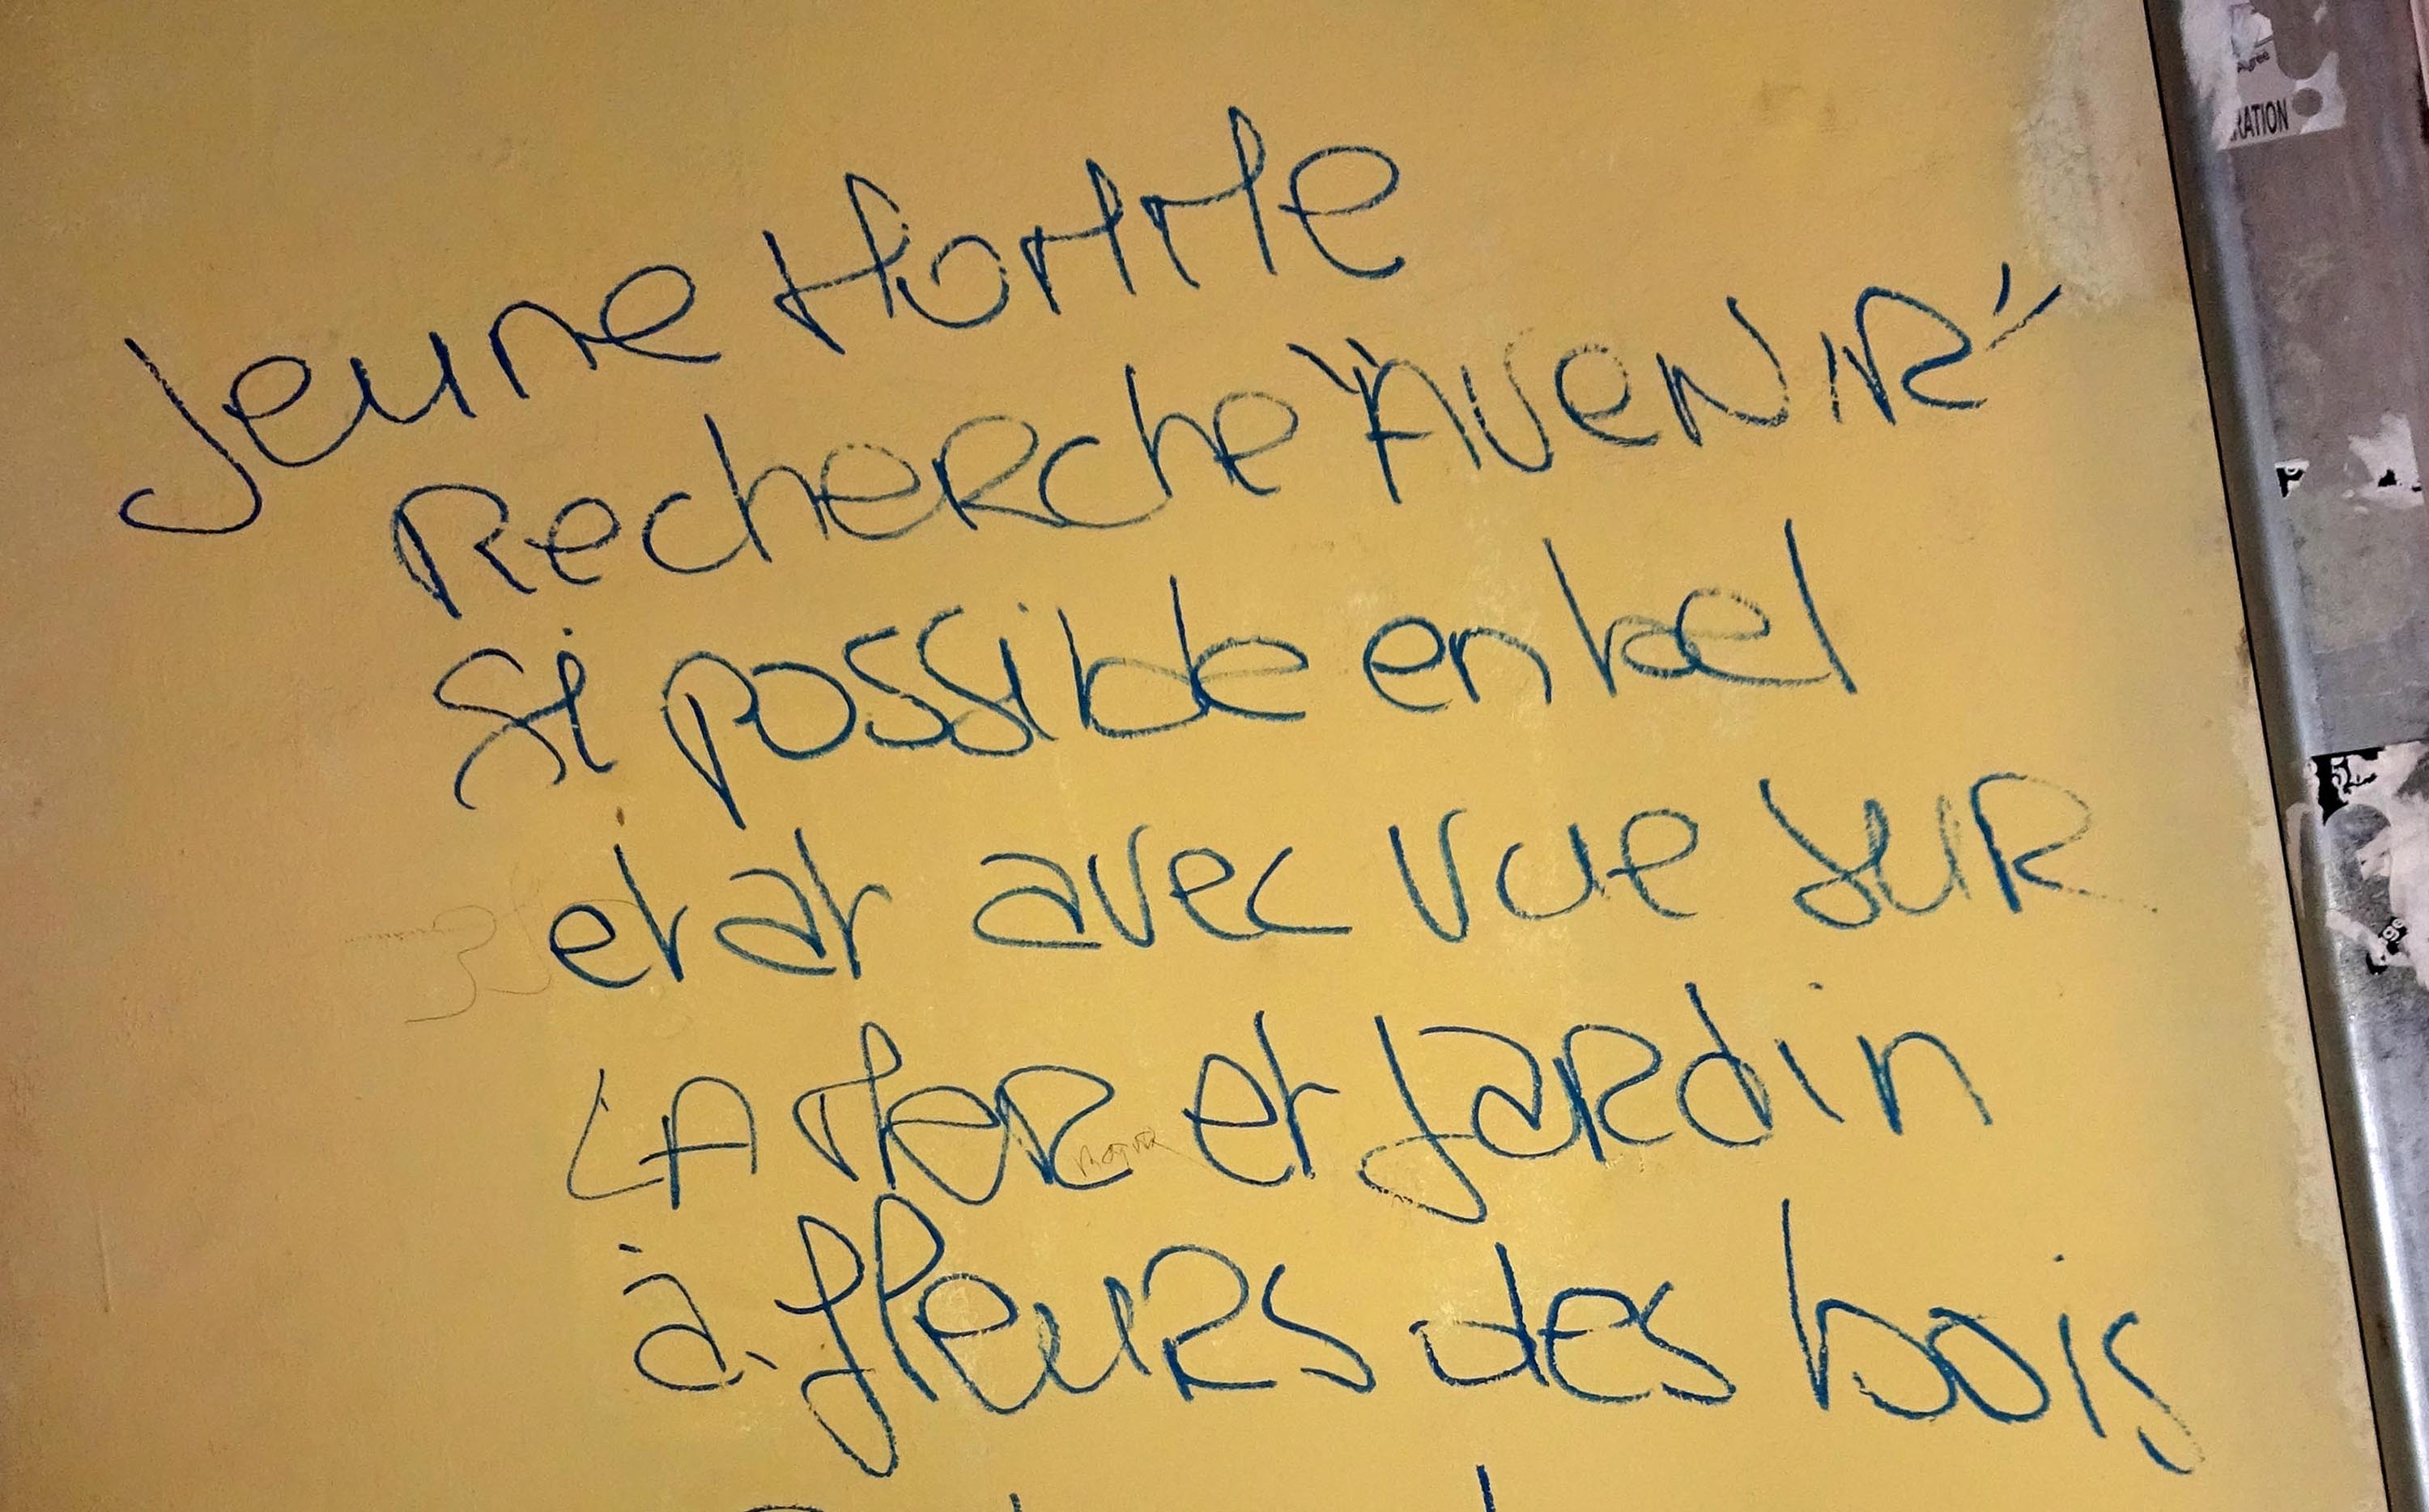 Jeune Homme
Recherche "AVENIR"
Si possible en bel
etat avec vue sur
LA Mer et Jardin
à fleurs des bois
RATION